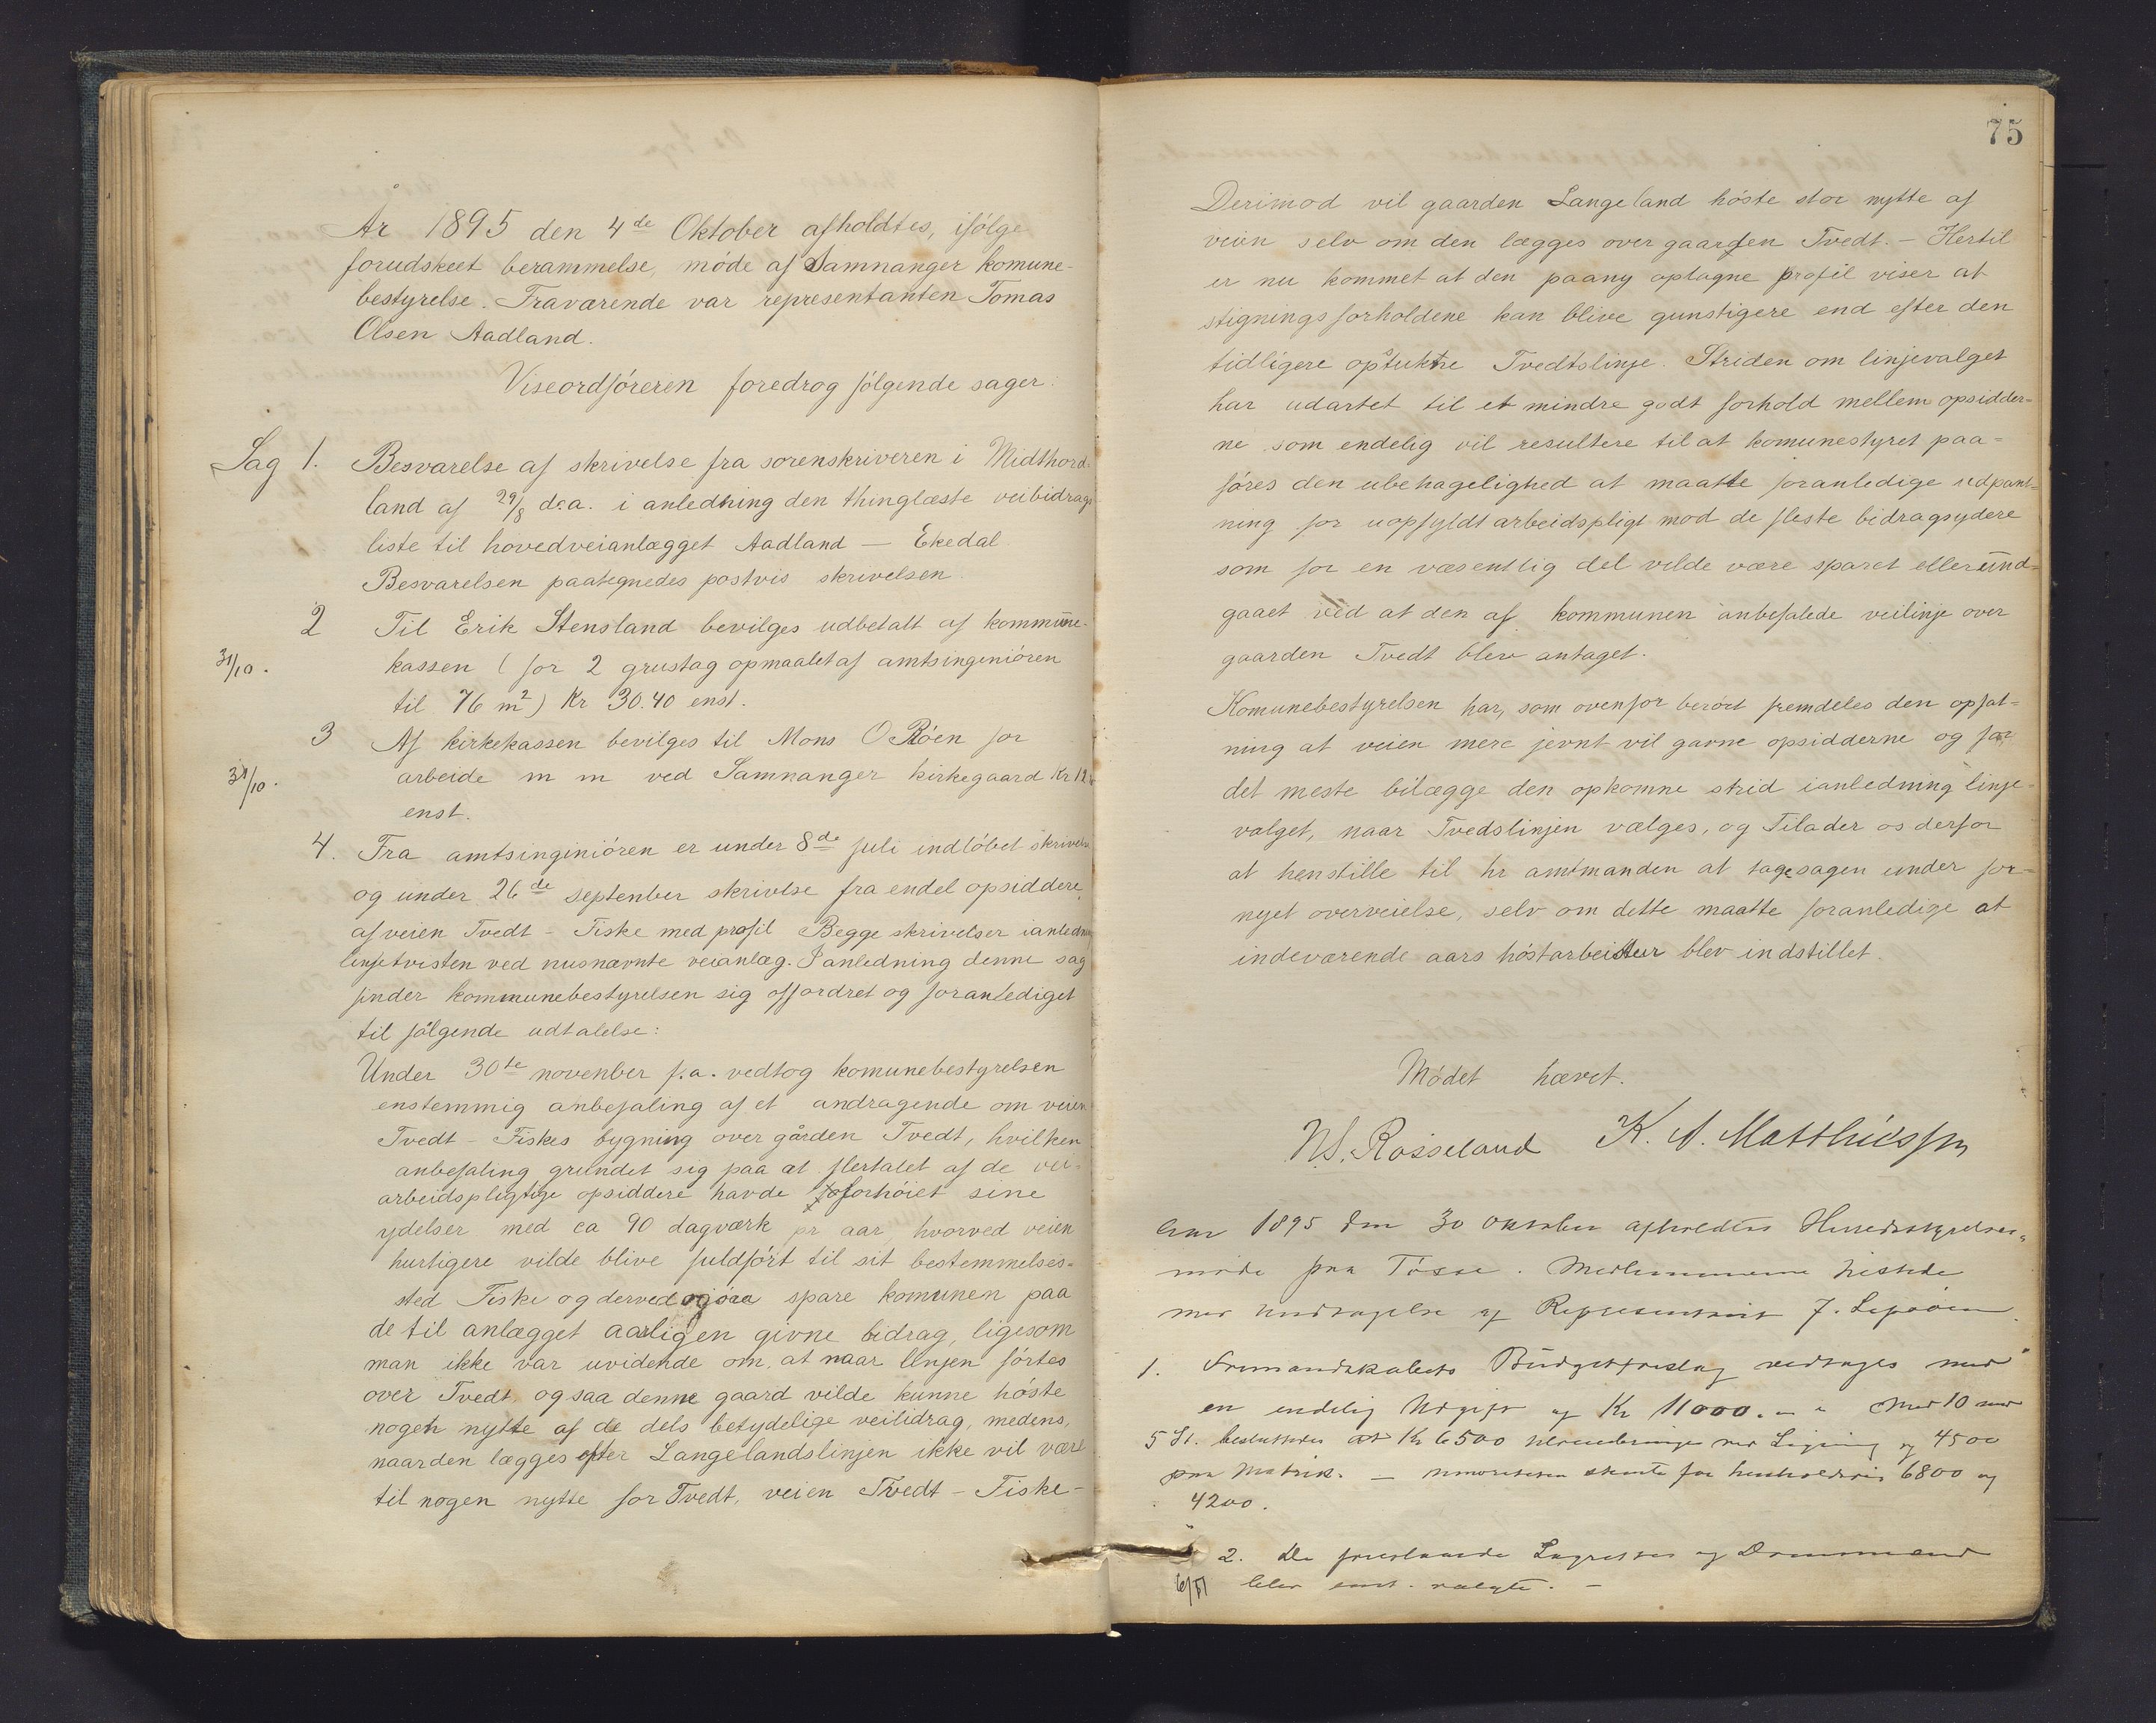 År 1895 den 4de Oktober afholdtes, ifólge
forudskeet berammelse, móde af Samnanger komune-
bestyrelse. Fraværende var representanten Tomas
Olsen Aadland.
Viseordfóreren foredrog fólgende sager:
Sag 1. Besvarelse af skrivelse fra sorenskriveren i Midthord-
land af 29/8 d.a. i anledning den thinglæste veibidrags
liste til hovedveianlægget Aadland — Ekedal
Besvarelsen paategnedes postvis skrivelsen.
2 Til Erik Stensland bevilges udbetalt af kommune-
31/10. kassen (for 2 grustag opmaalet af amtsingeniören
til 76 m2) Kr 30.40 enst.
3 Af kirkekassen bevilges til Mons O Róen for
31/10. arbeide m m ved Samnanger kirkegaard Kr 12
enst.
4. Fra amtsinginióren er under 8de juli indlóbet skrivelse
og under 26de septenber skrivlse fra endel opsiddere
af veien Tvedt - Fiske med profil Begge skrivelser ianledning
linjetvisten ved nusnævnte veianlæg. I anledning denne sag
finder kommunebestyrelsen sig opfordret og foranlediget
til fólgende udtalelse:
Under 30te novenber f.a. vedtog komunebestyrelsen
enstemmig anbefaling af et andragende om veien
Tvedt - Fiskes bygning over gården Tvedt, hvilken
anbefaling grundet sig paa at flertalet af de vei-
arbeidspligtige opsiddere havde forhóiet sine
ydelser med ca 90 dagværk pr aar, hvorved veien
hurtigere vilde blive fuldfórt til sit bestemmelses-
sted Fiske og derved ogsaa spare komunen paa
de til anlægget aarligen givne bidrag, ligesom
man ikke var uvidende om, at naar linjen fórtes
over Tvedt, ogsaa denne gaard vilde kunne hóste
nogen nytte af de dels betydelige veilidrag, medens,
naar den lægges efter Langelandslinjen ikke vil være
til nogen nytte for Tvedt, veien Tvedt - Fiske -
75
Derimod vil gaarden Langeland hóste stor nytte af
veien selv om den lægges over gaarden Tvedt. - Hertil
er nu kommet at den paany optagne profil viser at
stigningsforholdene kan blive gunstigere end efter den
tidligere opstukne Tvedtslinje. Striden om linjevalget
har udartet til et mindre godt forhold mellem opsidder=
ne som endelig vil resultere til at komunestyret paa=
fóres den ubehagelighed at maatte foranledige udpant=
ning for uopfyldt arbeidspligt mod de fleste bidragsydere
som for en væsentlig del vilde være sparet eller und=
gaaet ved at den af kommunen anbefalede veilinje over
gaarden Tvedt blev antaget.
Komunebestyrelsen har, som ovenfor berórt fremdeles den opfat=
ning at veien mere jevnt vil gavne opsidderne og for
det meste bilægge den opkomne strid ianledning linje-
valget, naar Tvedslinjen vælges, og Tilader os derfor
at henstille til hr amtmanden at tage sagen under for=
nyet overveielse, selv om dette maatte foranledige at
indeværende aars hóstarbeider blev indstillet.
Módet hævet.
N.S. Rosseland K. A. Matthiessen
Aar 1895 den 30 Oktober afholdtes Herredsstyrelses-
móde paa Tósse. Medlemmerne tilstede
med Undtagelse af Representant J.
1. Formandskabets Budgetforslag vedtages med
en endelig Udgift af Kr 11000. - Med 10 mod
5 St. besluttedes at Kr 6500 ved Ligning og 4500
paa Matrik. — minoriteten stemte for henholdsvis 6800 og
4200.
2. De foreslaaede Lagrettes og Domsmænd
6/11 blev enst. valgte. -